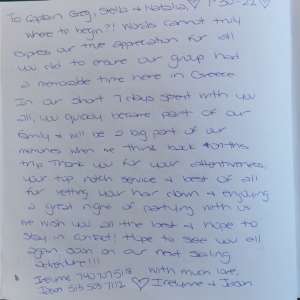 To Captain Greg, Stella & Natalia ♡ 7-30-22 ♡
Where to begin?! Words cannot truly
express our true appreciation for all
you did to ensure our group had
a memorable time here in Greece.
In our short 7 days spent with you
all, you quickly became part of our
family & will be a big part of our
memories when we think back on this
trip. Thank you for your attentiveness,
your top notch service & best of all
for letting your hair down & enjoying
a great night of partying with us.
We wish you all the best & hope to
stay in contact! Hope to see you all
again soon on our next sailing
adventure!!!
With much love,
♡ & Joan
Joan